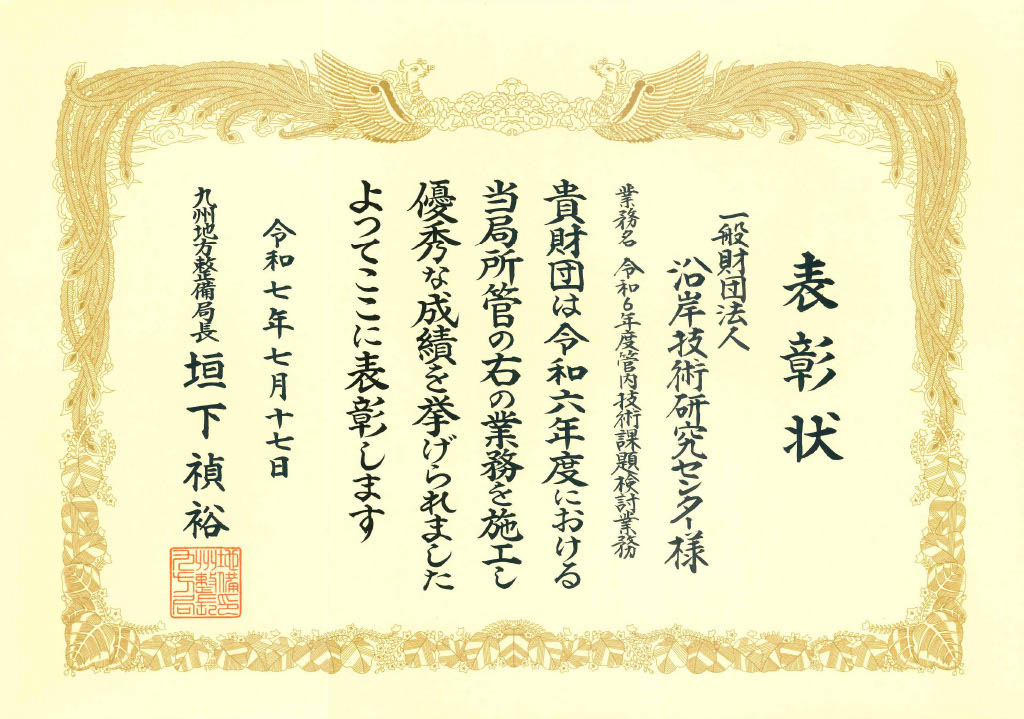 表彰状
一般財団法人
沿岸技術研究センター様
業務名 令和6年度管内技術課題検討業務
貴財団は令和六年度における
当局所管の右の業務を施工し
優秀な成績を挙げられました
よってここに表彰します
令和七年七月十七日
九州地方整備局長 垣下禎裕